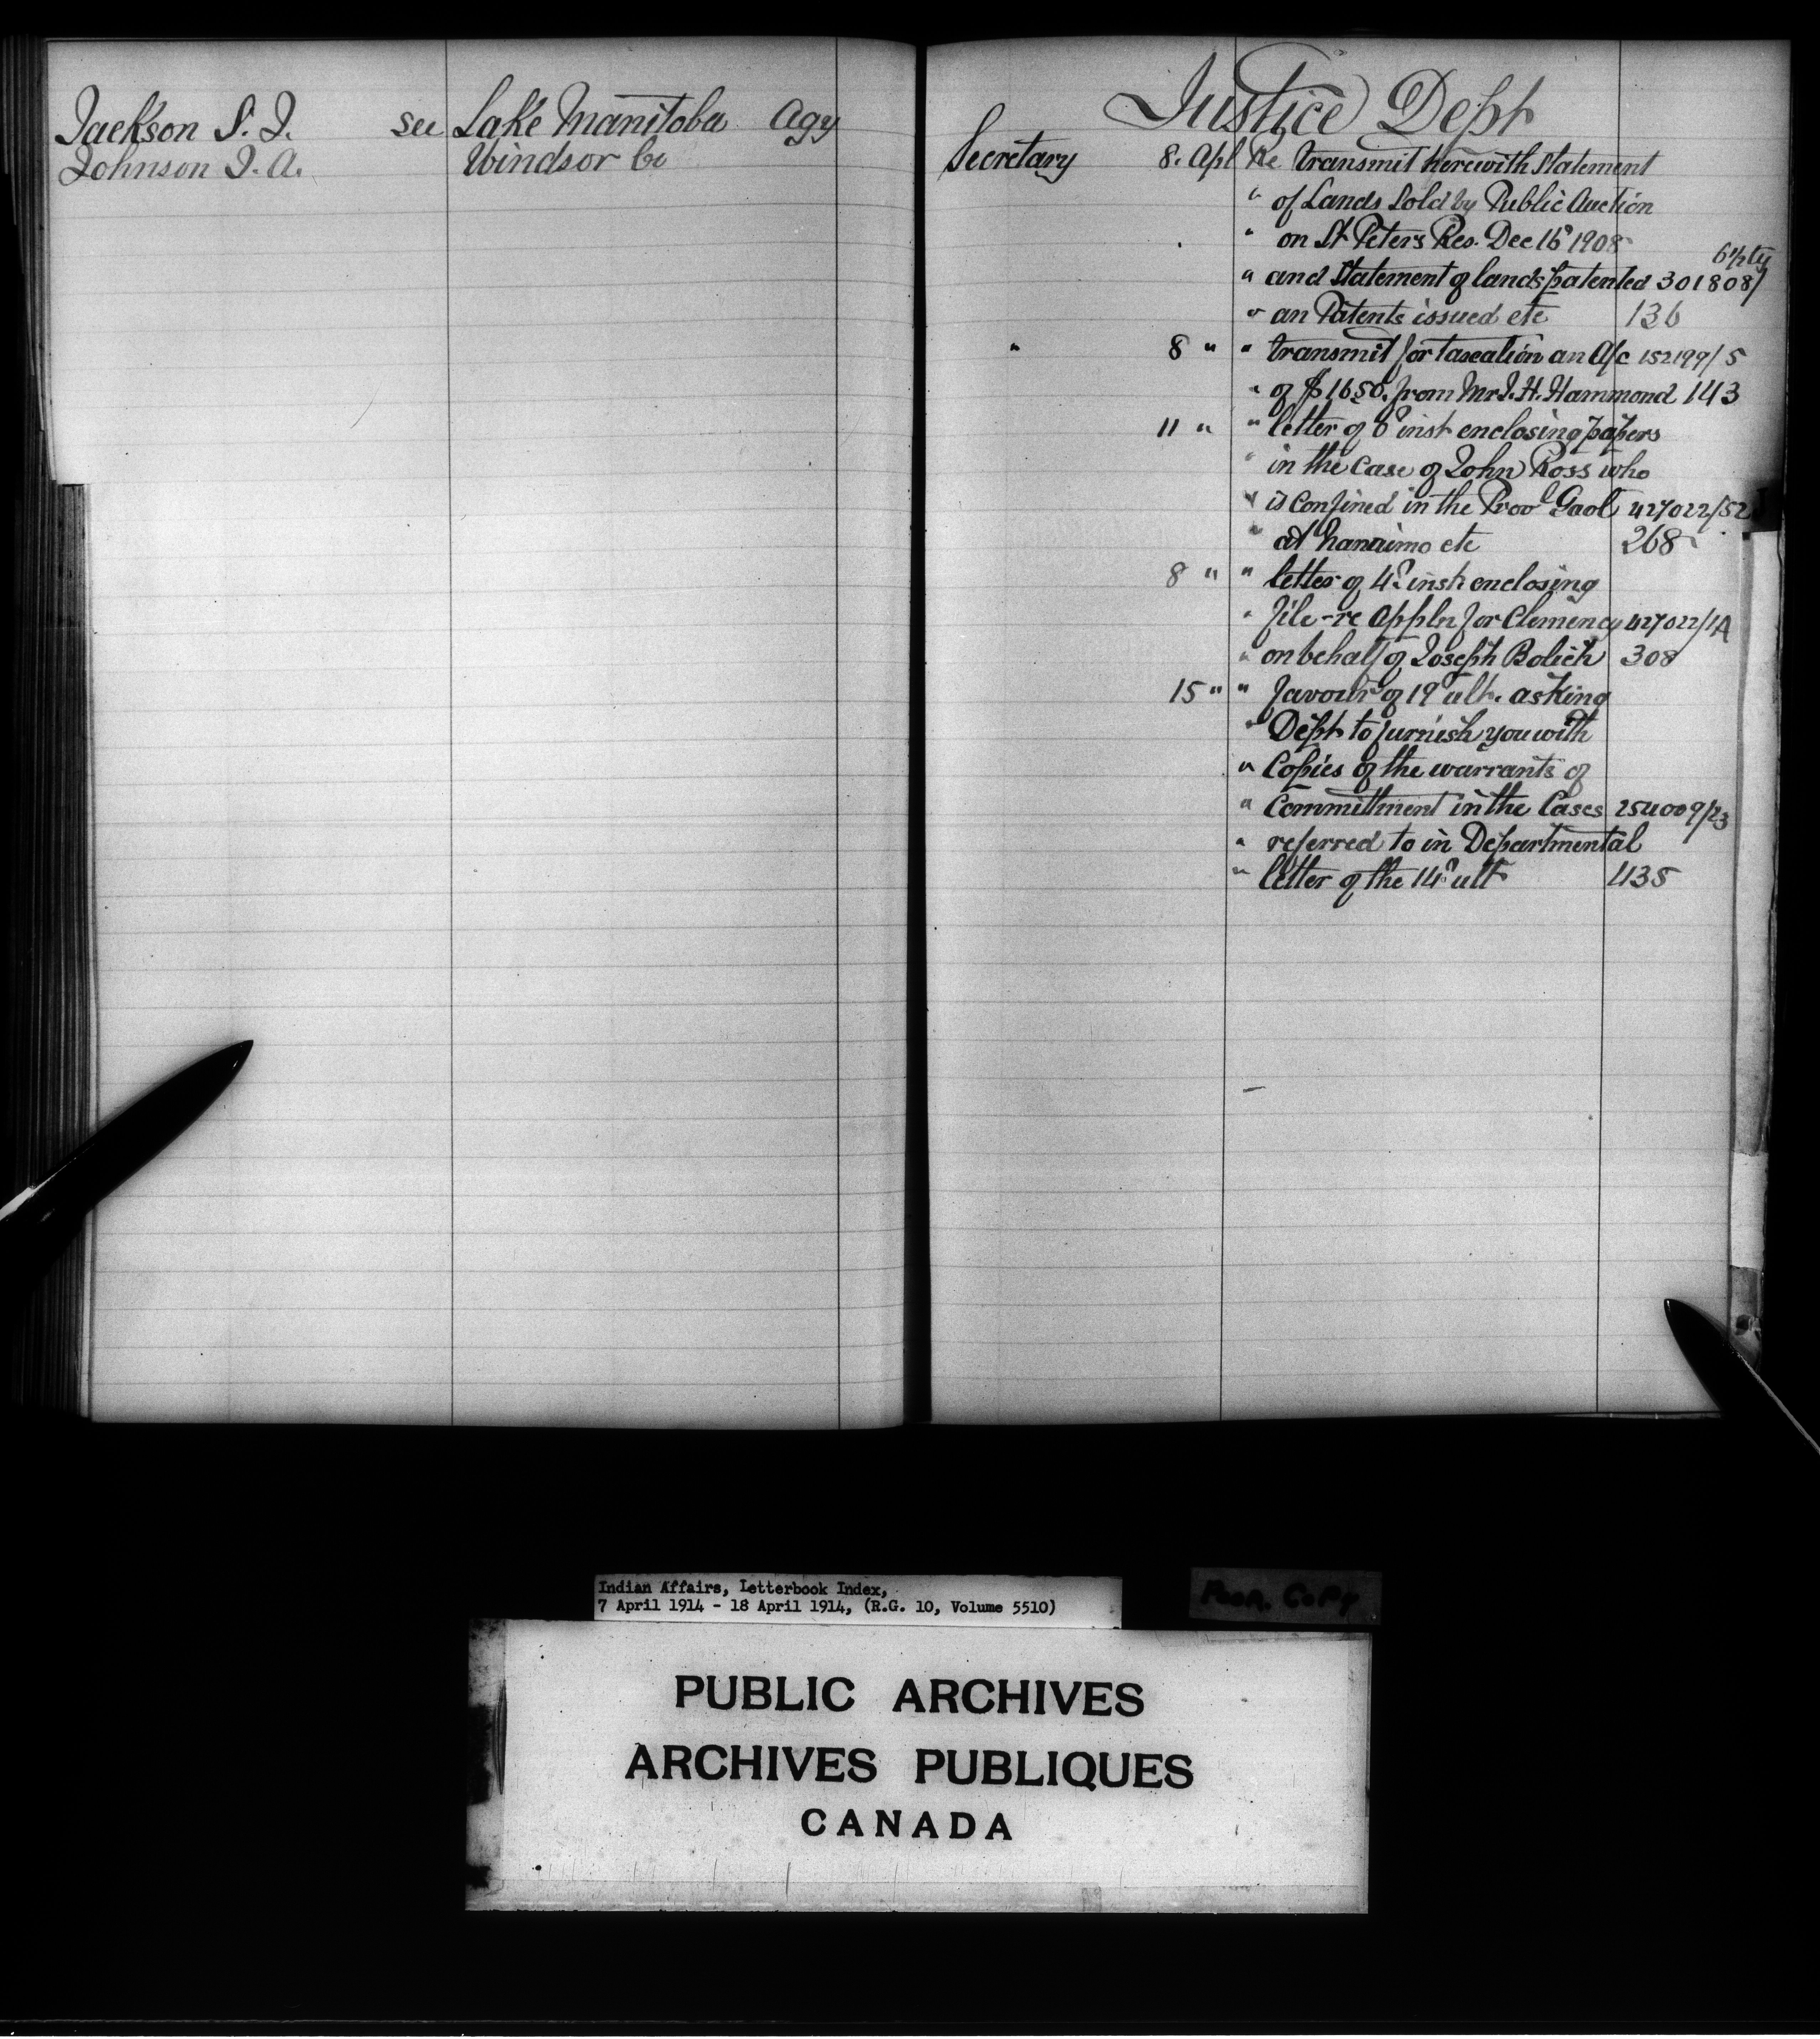 Jackson S. J. see Lake Manitoba Agy
Johnson J. A. Windsor Co
Justice Dept
Secretary 8. Apl Re transmit herewith Statement
" of Lands Sold by Public Auction
" on St Peters Res. Dec 16° 1908
" and Statement of lands patented 301808/
" an Patents issued etc 136
" 8 " " transmit for taxation an A/c 152199/5
" of $1650. from Mr J. H. Hammond 143
11 " " letter of 6° inst enclosing papers
" in the Case of John Ross who
" is Confined in the Provl Gaol 427022/52
" at Nanaimo etc 268
8 " " letter of 4° inst enclosing
" file - re Appln for Clemency 427022/1A
" on behalf of Joseph Bolich 308
15 " " favour of 19° ult. asking
" Dept to furnish you with
" Copies of the warrants of
" Committment in the Cases 254009/23
" referred to in Departmental
" letter of the 14° ult 435
Indian Affairs, Letterbook Index,
7 April 1914 - 18 April 1914, (R.G. 10, Volume 5510)
Poor Copy
PUBLIC ARCHIVES
ARCHIVES PUBLIQUES
CANADA